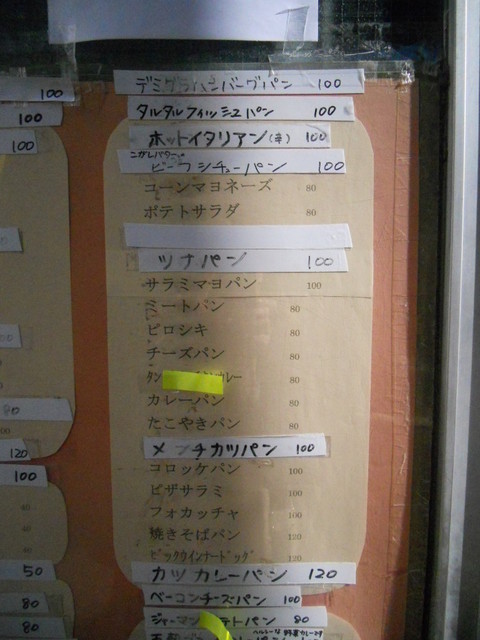 デミグラハンバーグパン 100
タルタルフィッシュパン 100
ホットイタリアン(辛) 100
こがしバター
ビーフシチューパン 100
コーンマヨネーズ 80
ポテトサラダ 80
ツナパン 100
サラミマヨパン 100
ミートパン 80
ピロシキ 80
チーズパン 80
カレー 80
カレーパン 80
たこやきパン 80
メンチカツパン 100
コロッケパン 100
ピザサラミ 100
フォカッチャ 100
焼きそばパン 120
ビックウインナードッグ 120
カツカレーパン 120
ベーコンチーズパン 100
ジャーマンポテトパン 80
100
100
100
80
120
100
40
40
40
50
80
80